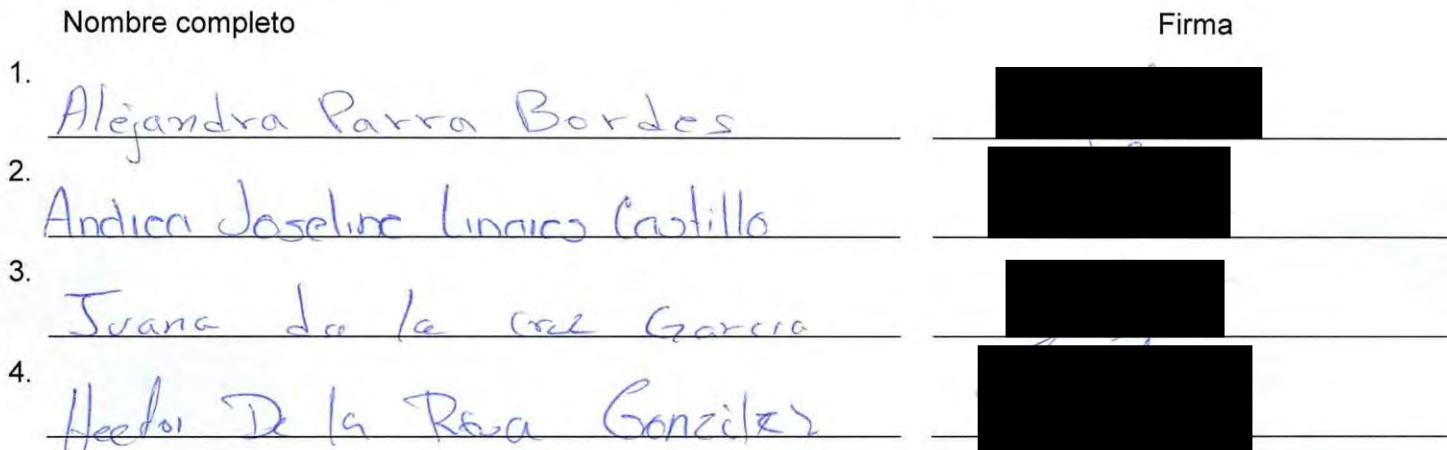 Nombre completo Firma
1. Alejandra Parra Bordes
2. Andrea Joseline Linares Castillo
3. Juana de la cruz Garcia
4. Hector De la Rosa González